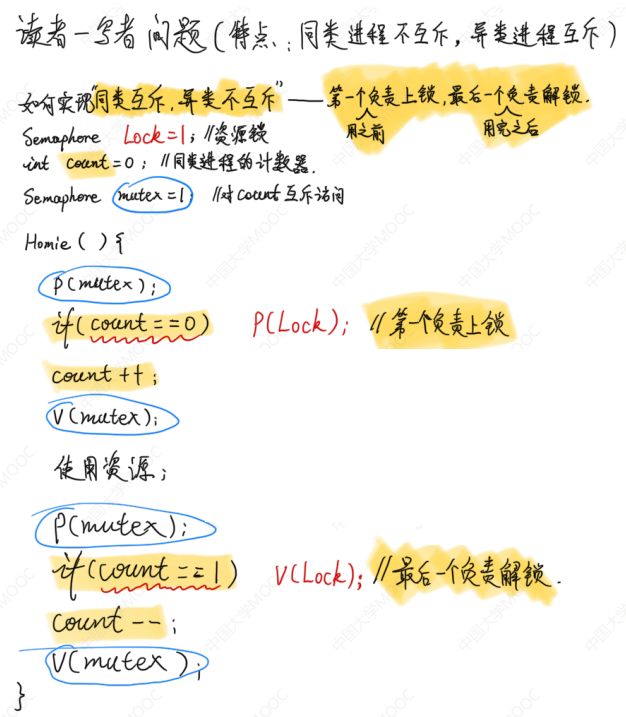 读者—写者问题(特点:同类进程不互斥,异类进程互斥)
如何实现"同类互斥,异类不互斥"——第一个负责上锁,最后一个负责解锁.
用之前 用完之后
Semaphore Lock=1; //资源锁
int count=0; //同类进程的计数器.
Semaphore mutex=1; //对count互斥访问
Homie ( ) {
P(mutex);
if(count==0) P(Lock); //第一个负责上锁
count ++;
V(mutex);
使用资源;
P(mutex);
if(count==1) V(Lock); //最后一个负责解锁.
count --;
V(mutex);
}
中国大学MOOC